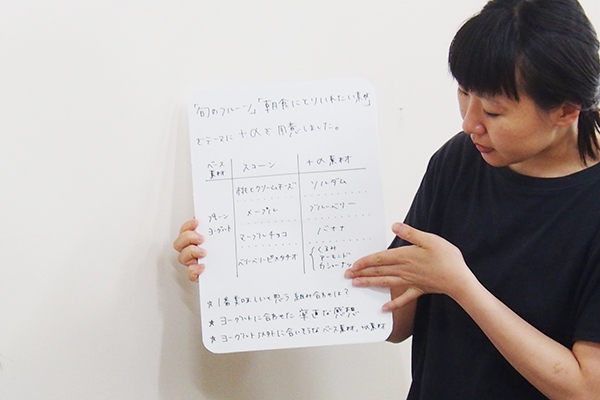 「旬のフルーツ」「朝食にとりいれたい素材」
をテーマに+αを用意しました。
ベース素材 スコーン +α素材
プレーンヨーグルト
桃とクリームチーズ ソルダム
メープル ブルーベリー
マーブルチョコ バナナ
ベリーベリーピスタチオ くるみ アーモンド カシューナッツ
★1番美味しいと思う組み合わせは?
★ヨーグルトに合わせた率直な感想
★ヨーグルト以外に合いそうなベース素材、+α素材